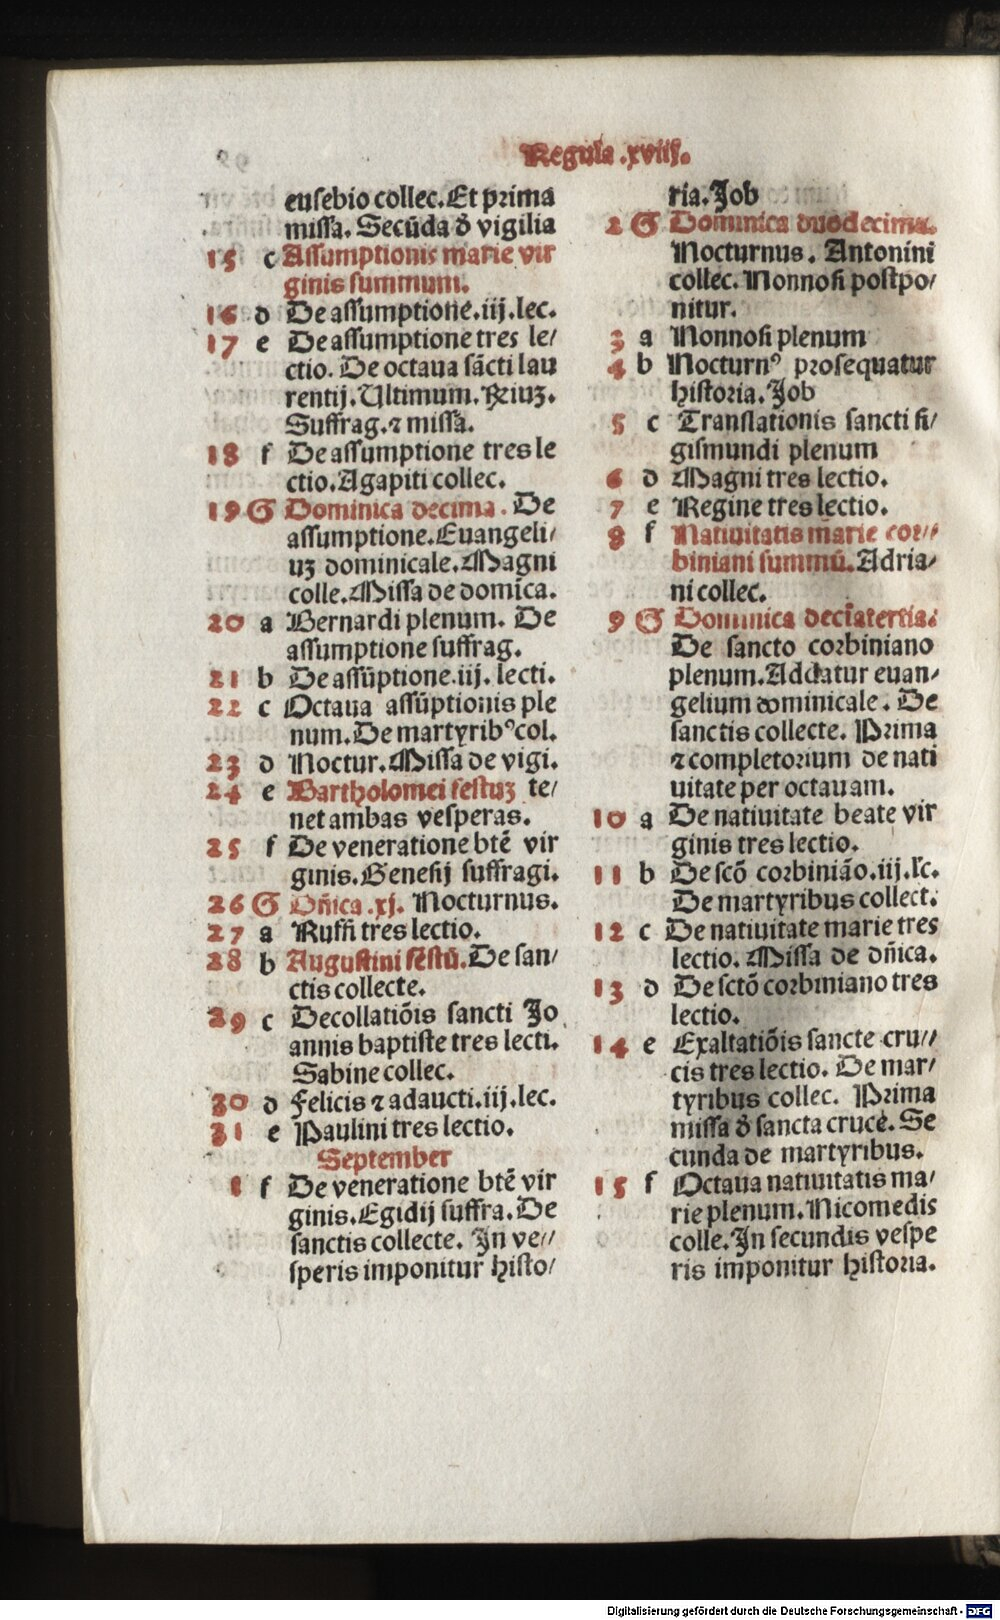 Regula .xviij.
eusebio collec. Et prima
missa. Secūda ꝺ̄ vigilia
15 c Assumptionis marie vir
ginis summum.
16 d De assumptione .iij. lec.
17 e De assumptione tres le/
ctio. De octaua sācti lau
rentij. Ultimum.
Suffrag. ⁊ missa.
18 f De assumptione tres le
ctio. Agapiti collec.
19 G Dominica decima. De
assumptione. Euangeli/
uʒ dominicale. Magni
colle. Missa de domīca.
20 a Bernardi plenum. De
assumptione suffrag.
21 b De assūptione .iij. lecti.
22 c Octaua assūptionis ple
num. De martyribꝰ col.
23 d Noctur. Missa de vigi.
24 e Bartholomei festuʒ te/
net ambas vesperas.
25 f De veneratione btē vir
ginis. Genesij suffragi.
26 G Dn̄ica .xj. Nocturnus.
27 a Ruffi tres lectio.
28 b Augustini festū. De san/
ctis collecte.
29 c Decollatiōis sancti Jo
annis baptiste tres lecti.
Sabine collec.
30 d Felicis ⁊ adaucti .iij. lec.
31 e Paulini tres lectio.
September
1 f De veneratione btē vir
ginis. Egidij suffra. De
sanctis collecte. In ve//
speris imponitur histo/
ria. Job
2 G Dominica duodecima.
Nocturnus. Antonini
collec. Nonnosi postpo/
nitur.
3 a Nonnosi plenum
4 b Nocturnꝰ prosequatur
historia. Job
5 c Translationis sancti si/
gismundi plenum
6 d Magni tres lectio.
7 e Regine tres lectio.
8 f Natiuitatis marie cor//
biniani summū. Adria/
ni collec.
9 G Dominica decīatertia.
De sancto corbiniano
plenum. Addatur euan/
gelium dominicale. De
sanctis collecte. Prima
⁊ completorium de nati
uitate per octauam.
10 a De natiuitate beate vir
ginis tres lectio.
11 b De scō corbiniāo .iij. lc̄.
De martyribus collect.
12 c De natiuitate marie tres
lectio. Missa de dn̄ica.
13 d De sctō corbiniano tres
lectio.
14 e Exaltatiōis sancte cru//
cis tres lectio. De mar/
tyribus collec. Prima
missa ꝺ̄ sancta cruce. Se
cunda de martyribus.
15 f Octaua natiuitatis ma/
rie plenum. Nicomedis
colle. In secundis vespe
ris imponitur historia.
Digitalisierung gefördert durch die Deutsche Forschungsgemeinschaft - DFG